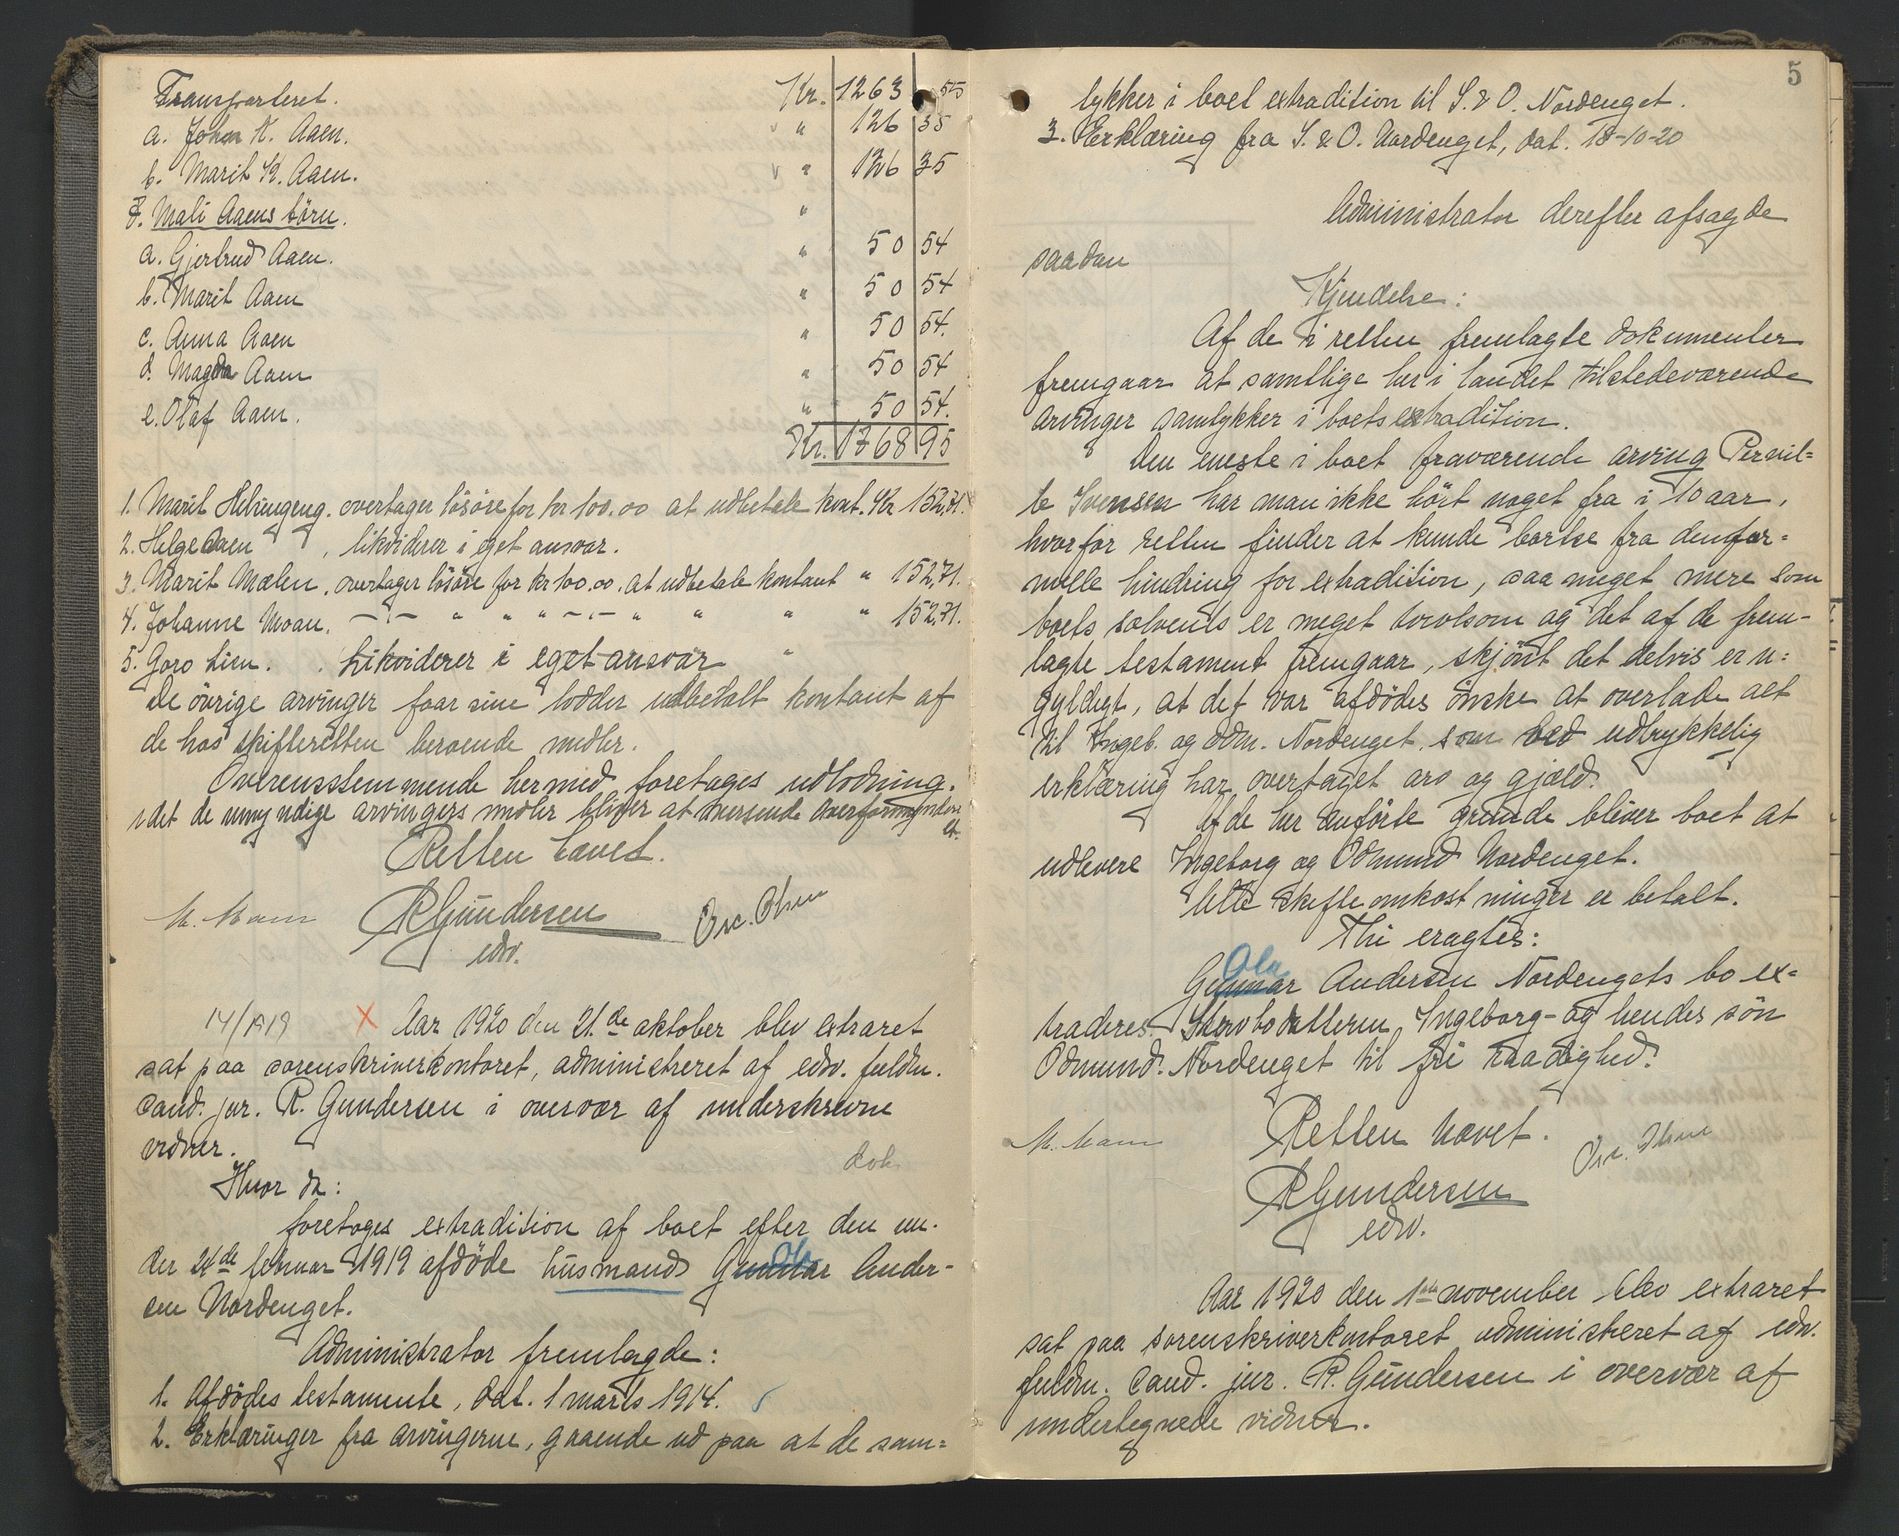 Transporteret. Kr. 1263 55
a. John K. Aaen. " 126 35
b. Marit K. Aaen. " 126 35
7. Mali Aaens börn. "
a. Gjertrud Aaen. " 50 54
b. Marit Aaen " 50 54
c. Anna Aaen " 50 54.
d. Magda Aaen " 50 54
e. Olaf Aaen. " 50 54.
Kr. 1768 95
1. Marit Helsingeng. overtager lösöre for kr 100.00 at udbetale kont. Kr 152,71.
2. Helge Aaen , likviderer i eget ansvar.
3. Marit Mælen. overtager lösöre for kr 100.00. at udbetale kontant " 152,71.
4. Johanne Moan. - " - " " " - " - " " " " 152,71.
5. Goro Lien. . Likviderer i eget ansvar "
De övrige arvinger faar sine lodder udbetalt kontant af
de hos skifteretten beroende midler.
Overensstemmende hermed foretages udlodning.
idet de umyndige arvingers midler bliver at oversende overformynderi
et.
Retten hævet.
M. Moum RGundersen Osc. Olsen
edv.
14/1919 X Aar 1920 den 21.de oktober blev extraret
sat paa sorenskriverkontoret, administreret af edv. fuldm.
cand. jur. R. Gundersen i overvær af underskrevne
vidner.
dok.
Hvor da:
foretoges extradition af boet efter den un-
der 24de februar 1919 afdöde husmand Gunnar Ola Ander-
sen Nordenget.
Administrator fremlagde:
1. Afdödes testamente, dat. 1 marts 1914.
2. Erklæringer fra arvingerne, gaaende ud paa at de sam=
5
tykker i boet extradition til I. & O. Nordenget.
3. Erklæring fra I. & O. Nordenget, dat. 18-10-20
Administrator derefter afsagde
saadan
Kjendelse:
Af de i retten fremlagte dokumenter
fremgaar at samtlige her i landet tilstedeværende
arvinger samtykker i boets extradition.
Den eneste i boet fraværende arving Pernil=
le Svensen har man ikke hört noget fra i 10 aar,
hvorfor retten finder at kunde bortse fra den for=
melle hindring for extradition, saa meget mere som
boets solvents er meget tvilsom og det af de frem-
lagte testament fremgaar, skjönt det delvis er u=
gyldigt, at det var afdödes önske at overlade alt
til Ingeb. og Odm. Nordenget. som ved udtrykkelig
erklæring har overtaget arv og gjæld.
Af de her anförte grunde bliver boet at
udlevere Ingeborg og Odmund Nordenget.
Alle skifteomkostninger er betalt.
Thi eragtes:
Gunnar Ola Andersen Nordengets bo ex=
traderes Stervbodatteren Ingeborg - og hendes sön
Odmund Nordenget til fri raadighed.
Retten hævet.
M. Moum Osc. Olsen
RGundersen
edv.
Aar 1920 den 1ste november blev extraret
sat paa sorenskriverkontoret administreret af edv.
fuldm. cand. jur. R. Gundersen i overvær af
undertegnede vidner.